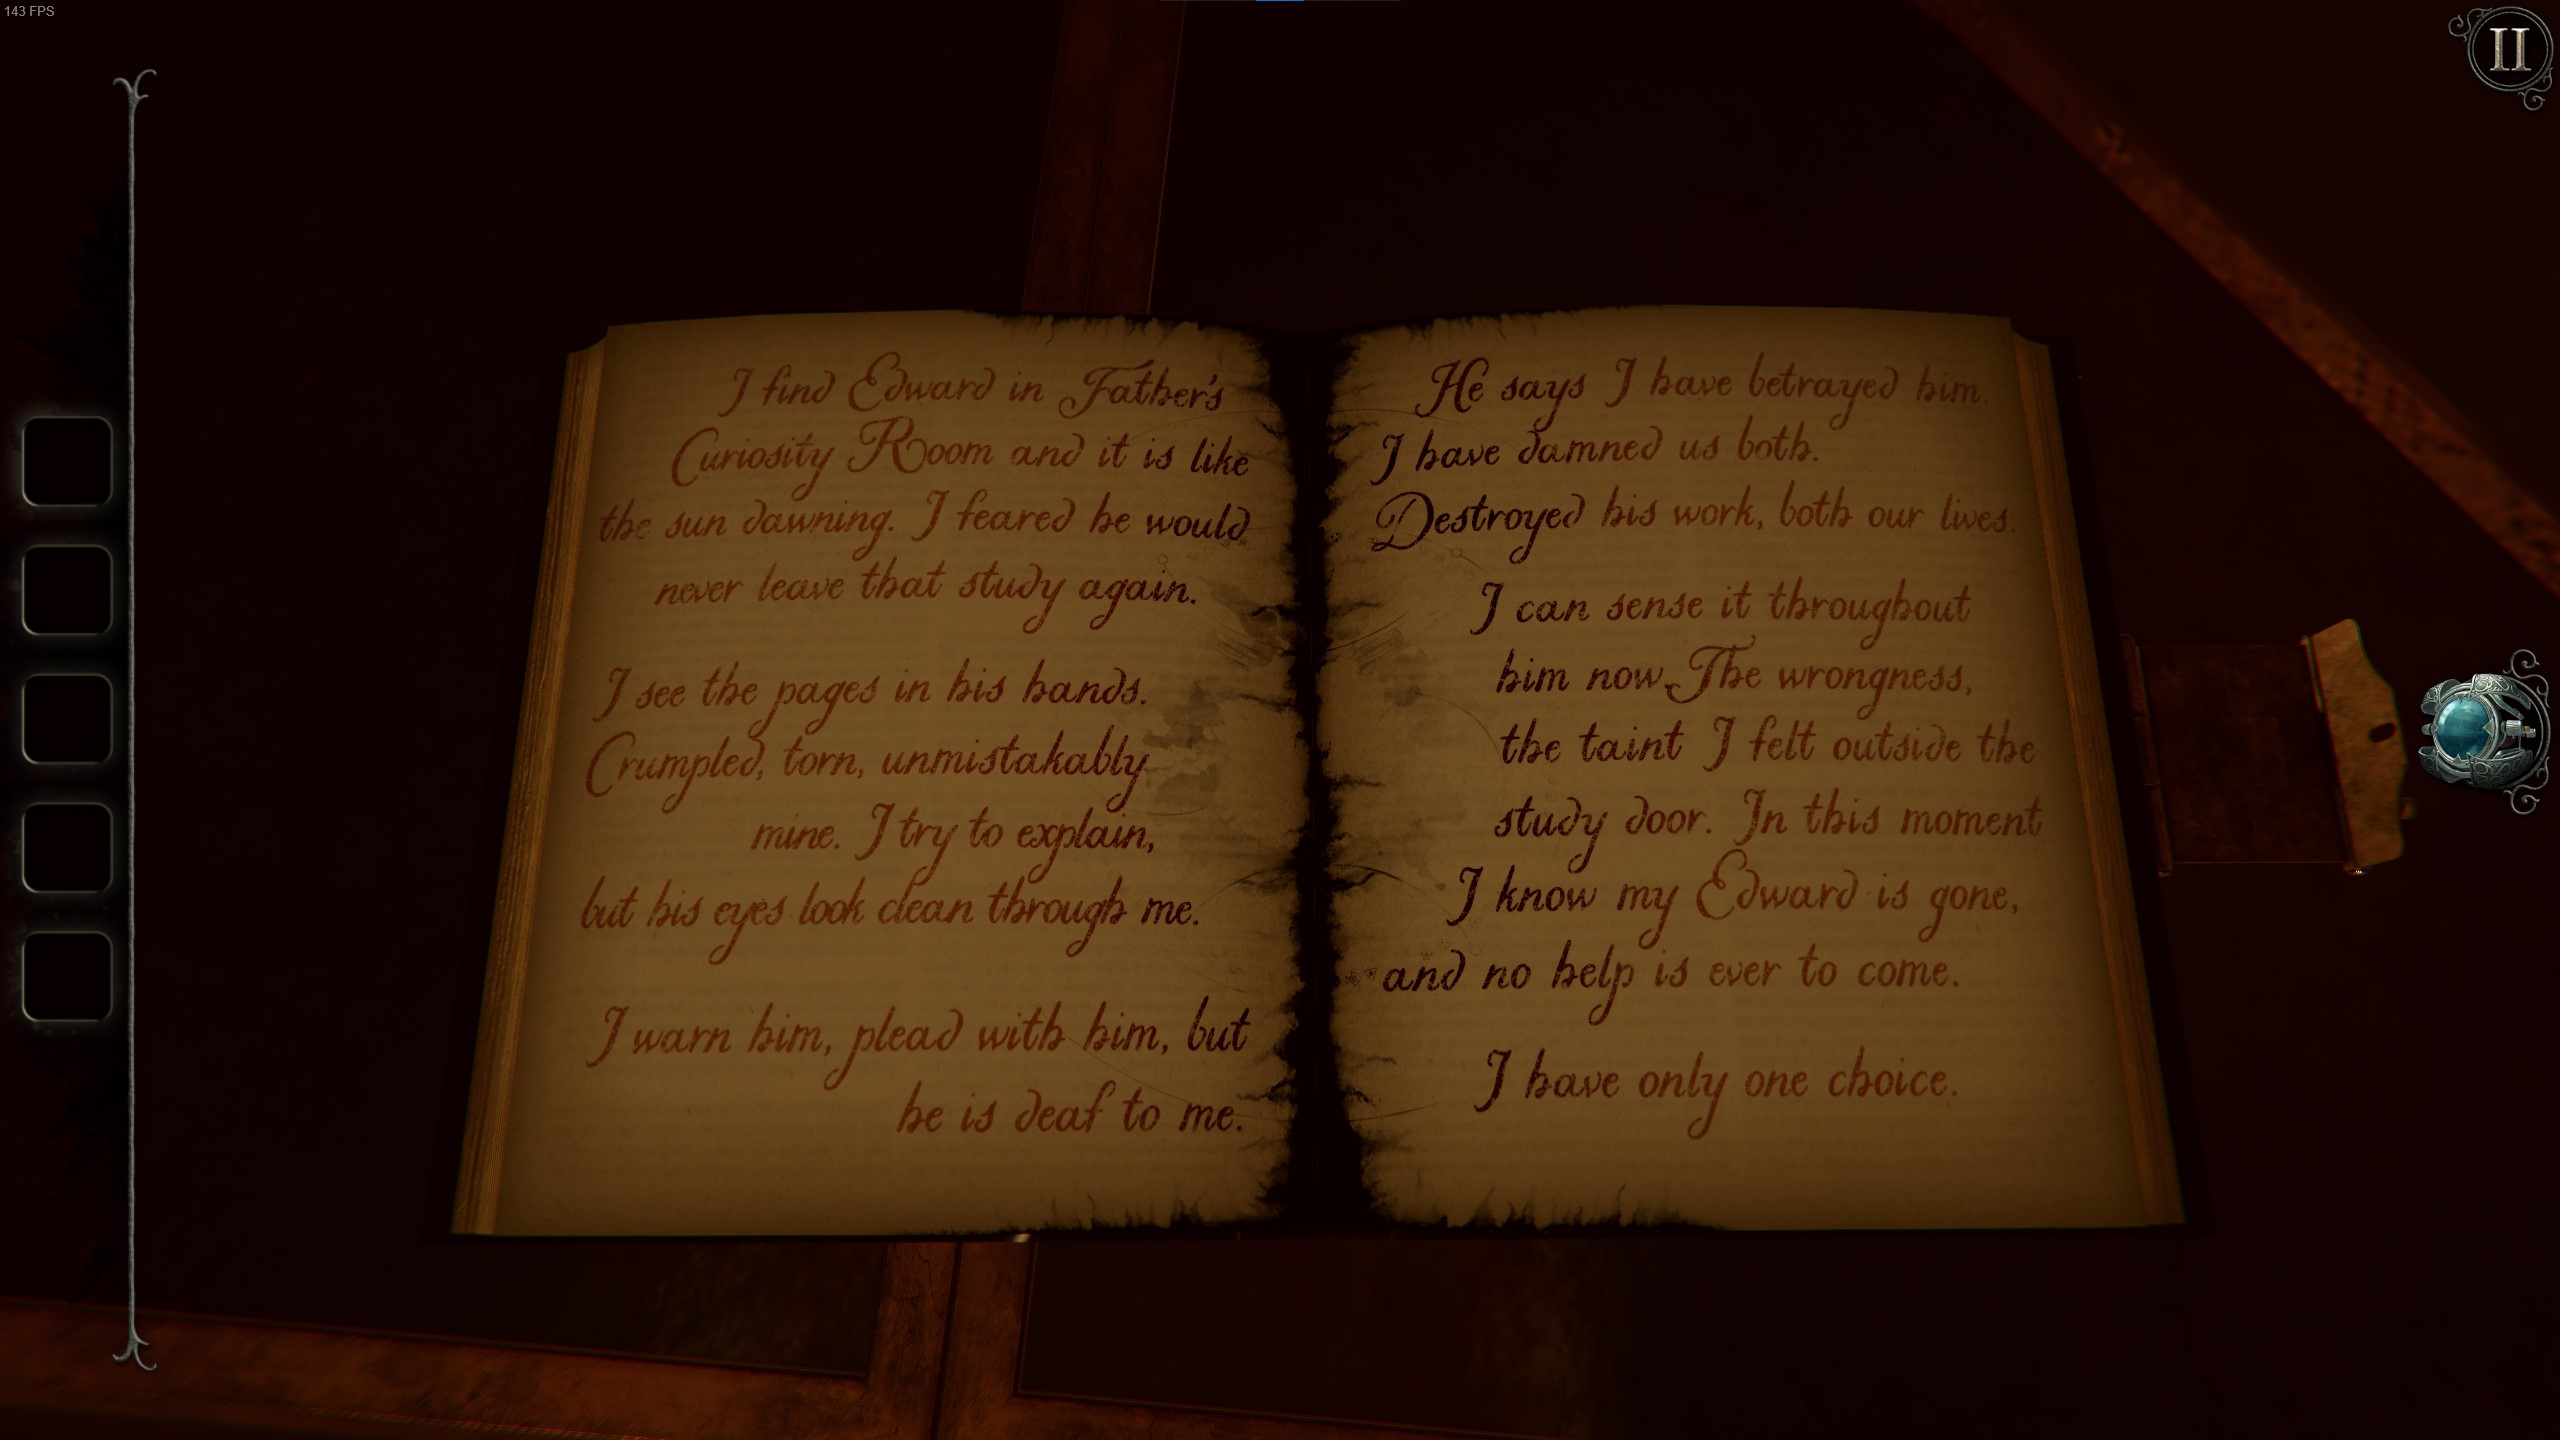 143 FPS
II
I find Edward in Father's
Curiosity Room and it is like
the sun dawning. I feared he would
never leave that study again.
I see the pages in his hands.
Crumpled, torn, unmistakably
mine. I try to explain,
but his eyes look clean through me.
I warn him, plead with him, but
he is deaf to me.
He says I have betrayed him.
I have damned us both.
Destroyed his work, both our lives.
I can sense it throughout
him now. The wrongness,
the taint I felt outside the
study door. In this moment
I know my Edward is gone,
and no help is ever to come.
I have only one choice.